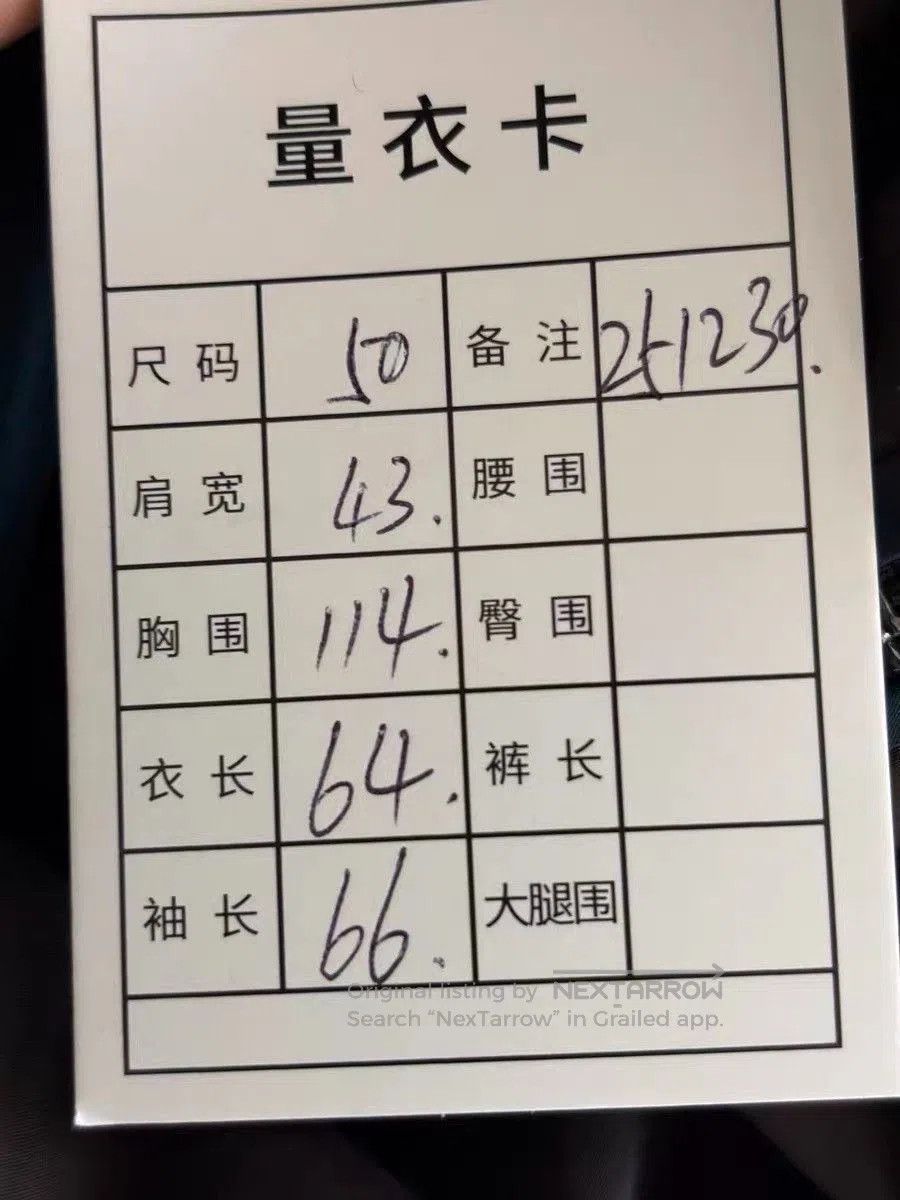 量衣卡
尺码 50 备注 251230.
肩宽 43. 腰围
胸围 114. 臀围
衣长 64. 裤长
袖长 66. 大腿围
Original listing by NEXTARROW
Search “NexTarrow” in Grailed app.